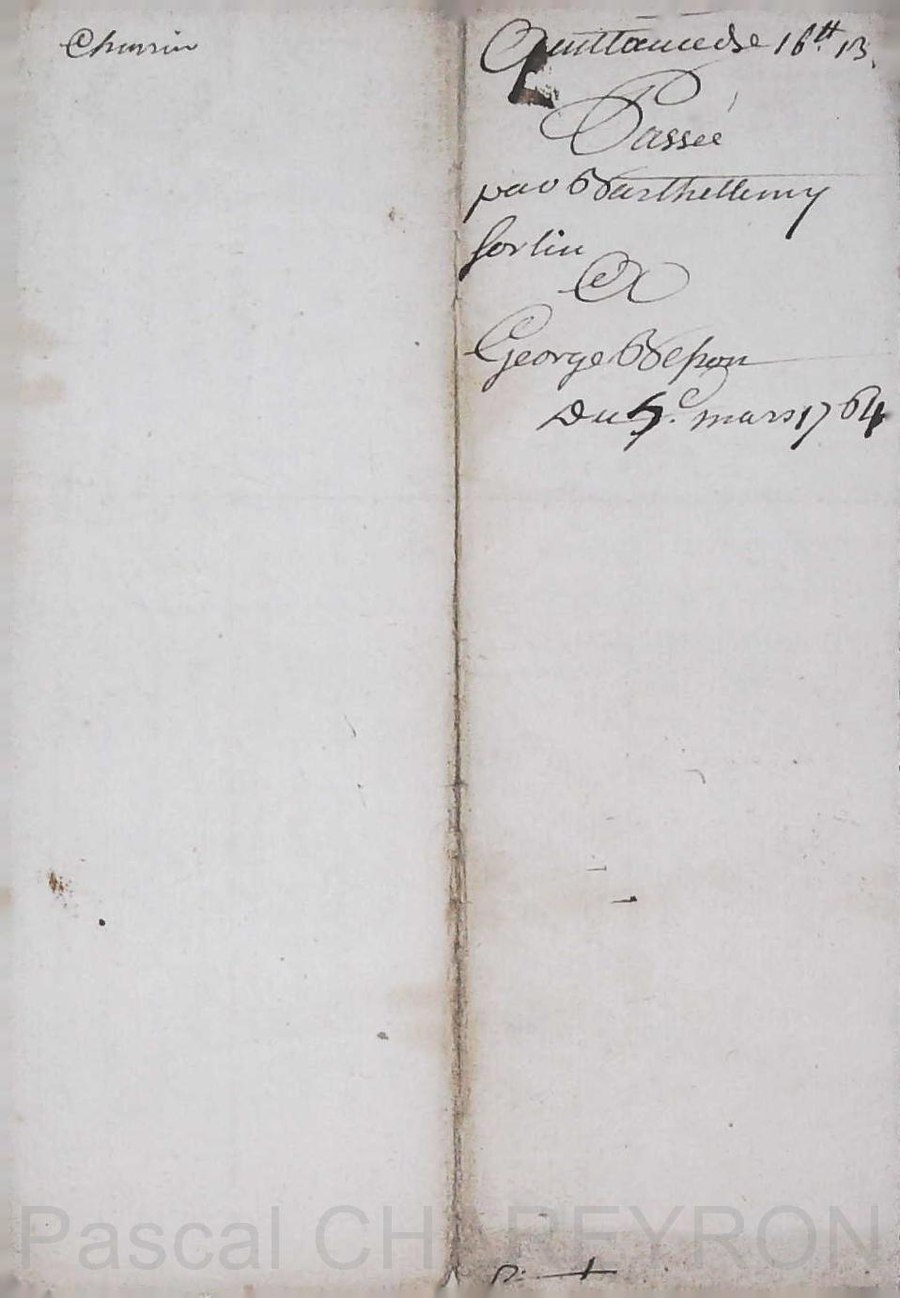 Churin
Quittance de 16ᵗᵗ 13.
Passée
par Barthellemy
Sorlin
A
George Bepon
Du 5ᵉ. mars 1764
Pascal CHAREYRON